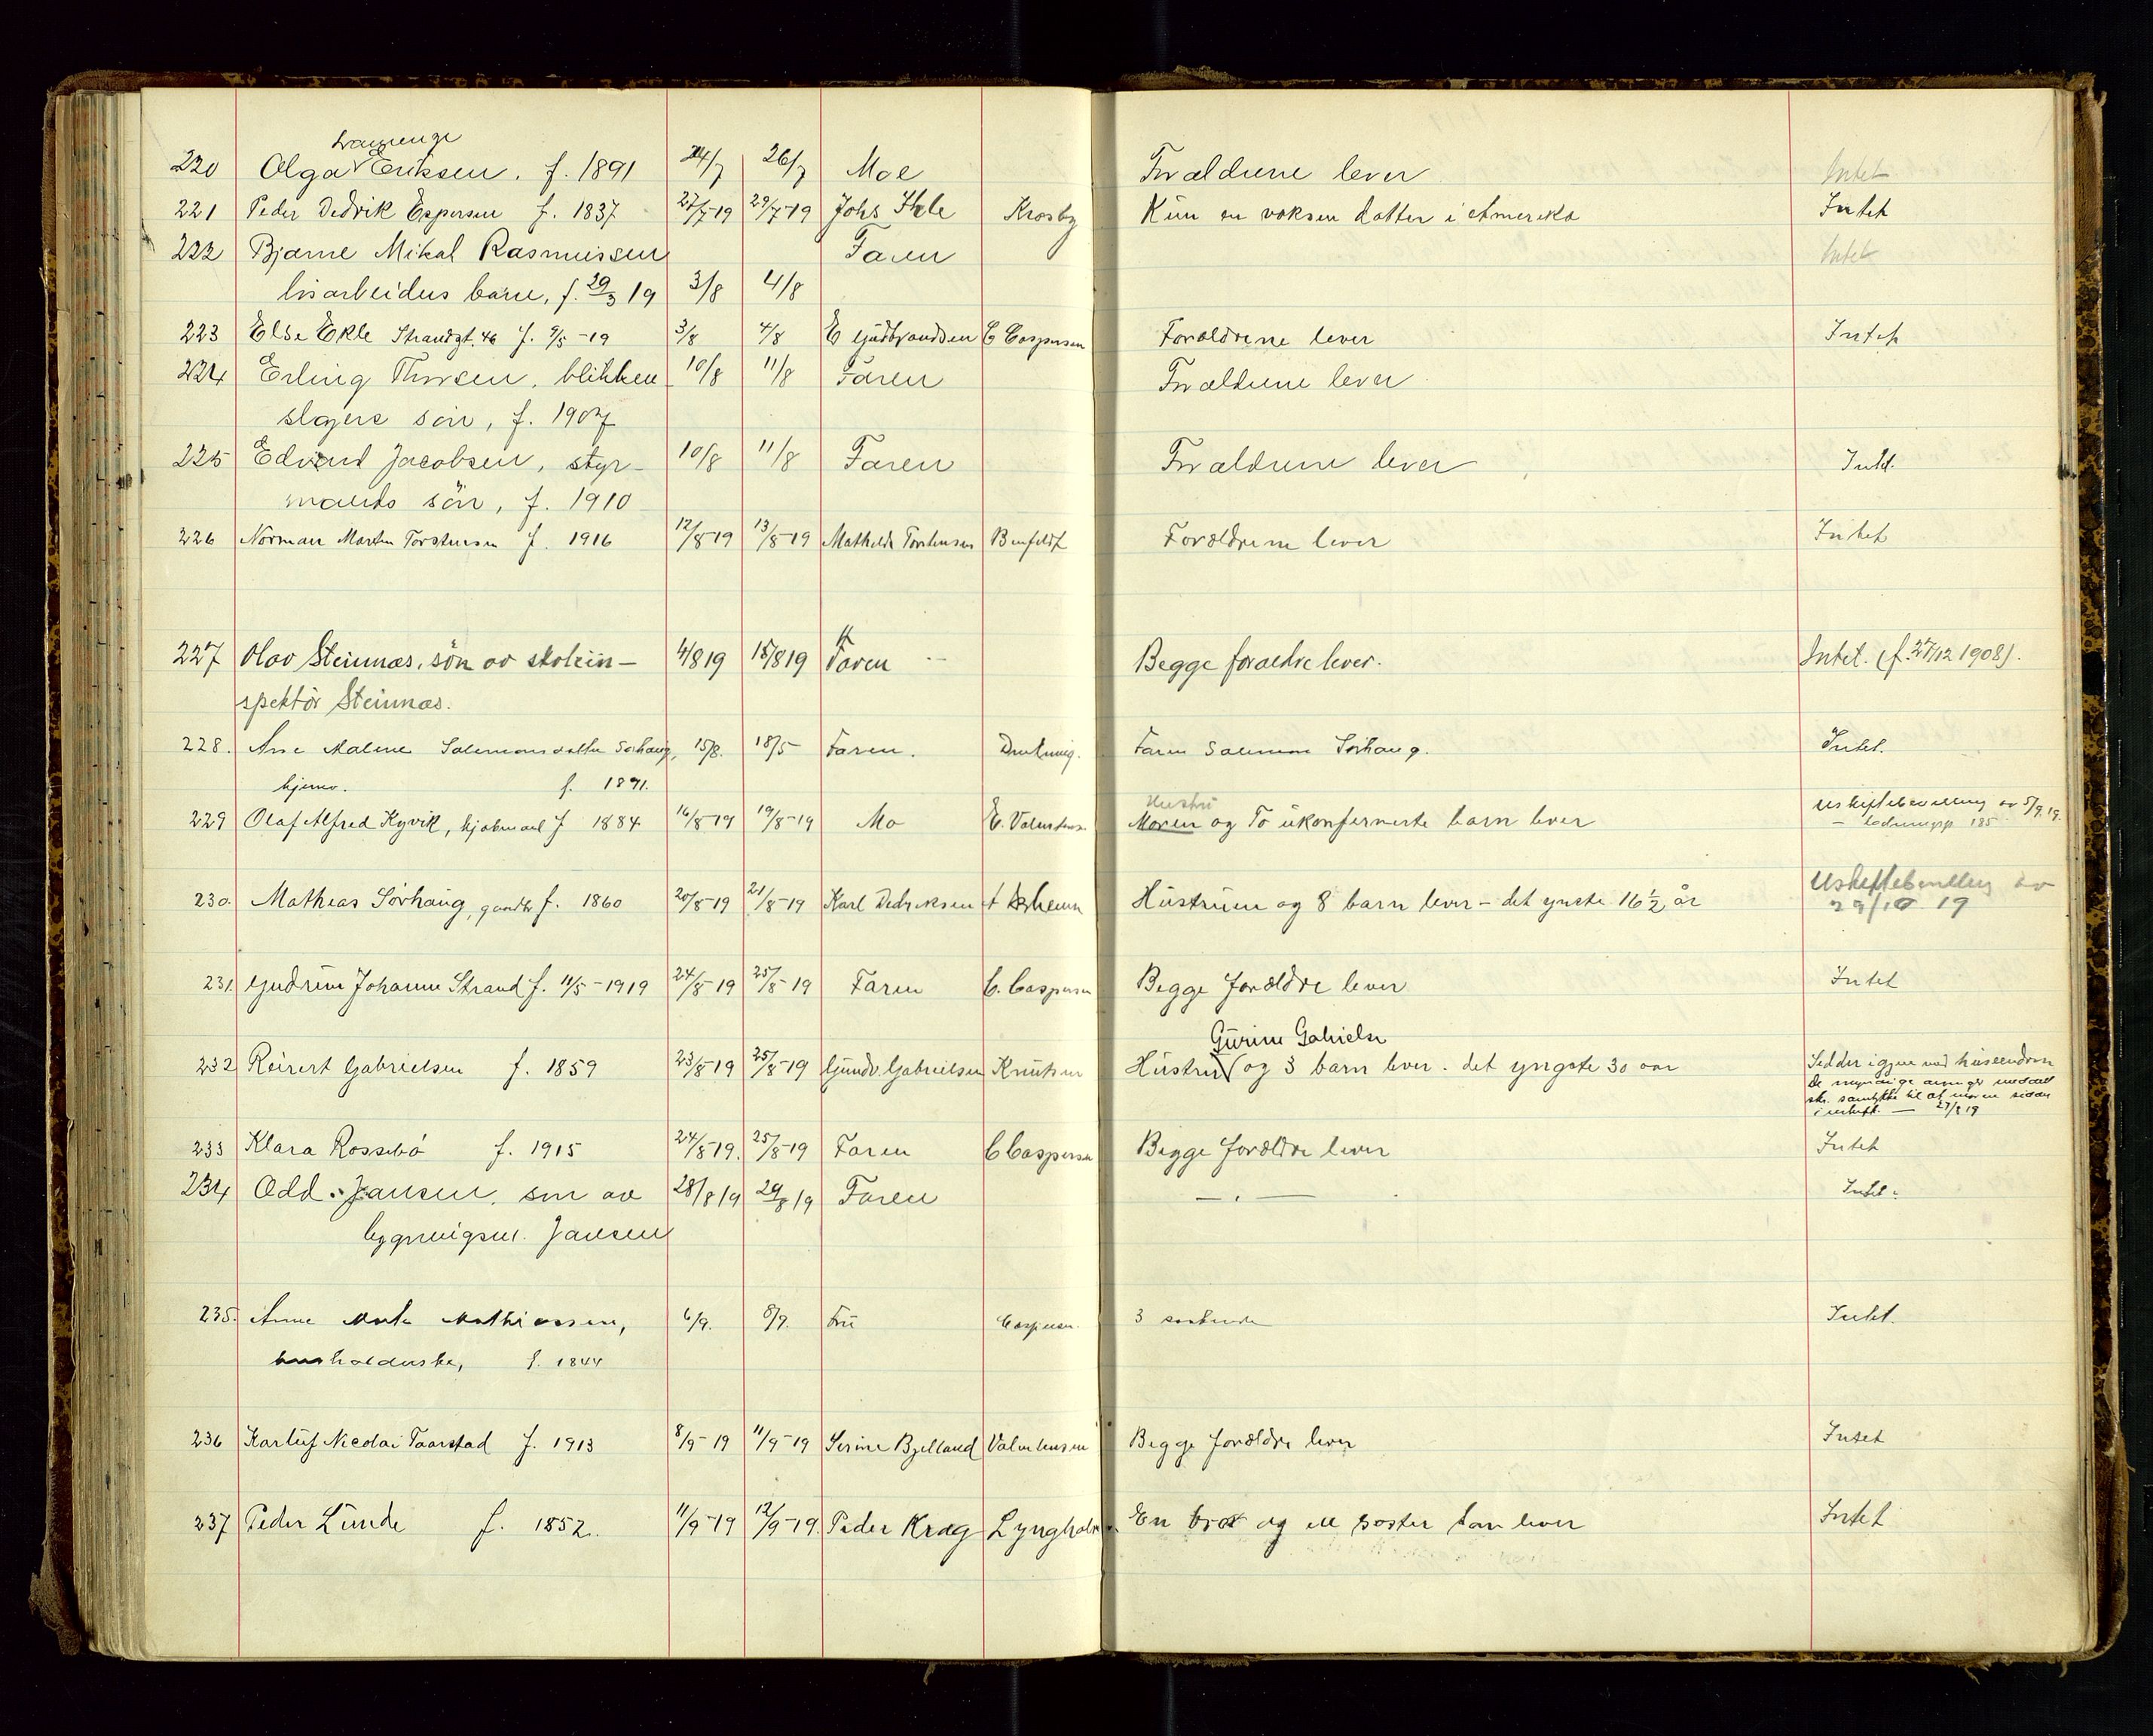 220 Olga Eriksen, f. 1891 24/7 26/7 Moe Forældrene lever Intet
221 Peder Dedrik Espersen f. 1837 27/7-19 29/7-19 Johs Krosby Kun en voksen datter i Amerika Intet
222 Bjarne Mikal Rasmussen Faren Intet
barn, f. 29/3 19 3/8 4/8
223 Else Ekle Strandgt. 46 f. 9/5-19 3/8 4/8 E Gudbrandsen C Caspersen Forældrene lever Intet
224 Erling Thorsen, blikken- 10/8 11/8 Faren Forældrene lever
slagers søn, f. 1907
225 Edvard Jacobsen, styr- 10/8 11/8 Faren Forældrene lever Intet.
mands søn, f. 1910
226 Norman Martin Torstensen f. 1916 12/8-19 13/8-19 Mathilde Torstensen Forældrene lever Intet
227 Olav Steinnæs, søn av skolein- 4/8 19 15/8 19 Faren Begge forældre lever. Intet. (f. 27/12 1908).
spektør Steinnæs.
228. Ane Malene Salemonsdatter Sørhaug, 15/8. 18/5 Faren. Faren Salemon Sørhaug. Intet.
f. 1891.
Hustru
229 Olaf Alfred Kyvik, kjøbmand f 1884 16/8-19 19/8-19 Mo E. Valentinsen Moren og To ukonfirmerte barn lever Uskiftebevilling av 5/9.19.
185
230. Mathias Sørhaug, gaardbr f. 1860 20/8-19 21/8-19 Karl Dedriksen Hustruen og 8 barn lever - det yngste 16 1/2 år Uskiftebevilling av
29/10 19
231. Gudrun Johanne Strand f. 11/5-1919 24/8-19 25/8-19 Faren C. Caspersen Begge forældre lever Intet
Gurine Gabrielsen
232 Reinert Gabrielsen f. 1859 23/8-19 25/8-19 Gundv. Gabrielsen Knutsen Hustru og 3 barn lever. det yngste 30 aar Sedder igjen ved
De myndige arvinger meddelt
skr. samtykke til at moren sidder
i uskift. — 27/8 19
233 Klara Rossebø f. 1915 24/8-19. 25/8-19 Faren C Caspersen Begge forældre lever Intet
234 Odd Jansen, søn av 28/8 19 29/8 19 Faren — " — Intet.
bygningsm. Jansen
235. Anne Marta Mathiassen, 6/9. 8/9. Fru Caspersen. 3 søskende Intet.
husholderske, f. 1844
236 Karluf Nicolai Taarstad f. 1913 8/9-19 11/9-19 Serine Bjelland Valentinsen Begge forældre lever Intet
237 Peder Lunde f. 1852. 11/9-19 12/9-19. Peder Krag Lyngholm En bror og en søster barn lever Intet